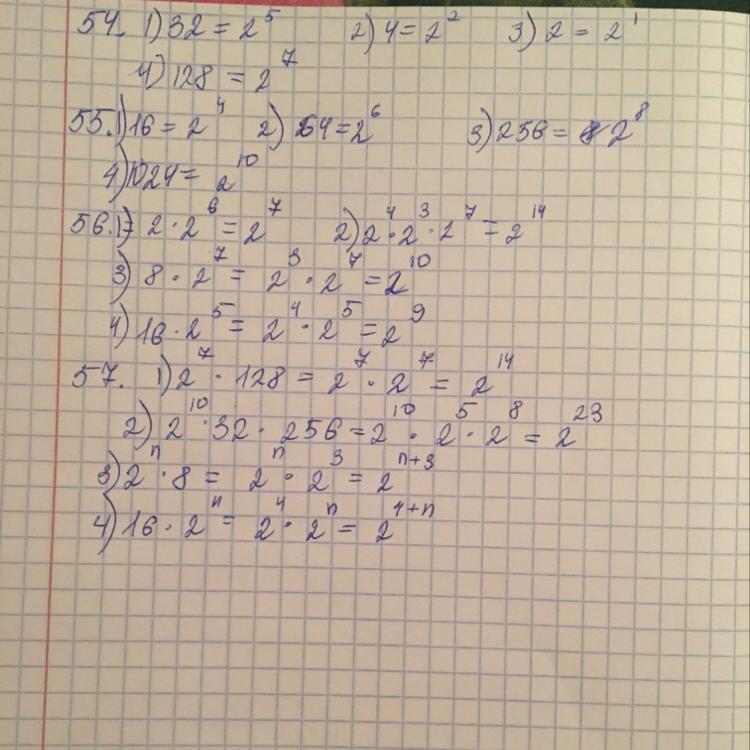 54. 1) 32 = 2⁵ 2) 4 = 2² 3) 2 = 2¹
4) 128 = 2⁷
55. 1) 16 = 2⁴ 2) 64 = 2⁶ 3) 256 = 2⁸
4) 1024 = 2¹⁰
56. 1) 2 · 2⁶ = 2⁷ 2) 2⁴ · 2³ · 2⁷ = 2¹⁴
3) 8 · 2⁷ = 2³ · 2⁷ = 2¹⁰
4) 16 · 2⁵ = 2⁴ · 2⁵ = 2⁹
57. 1) 2⁷ · 128 = 2⁷ · 2⁷ = 2¹⁴
2) 2¹⁰ · 32 · 256 = 2¹⁰ · 2⁵ · 2⁸ = 2²³
3) 2ⁿ · 8 = 2ⁿ · 2³ = 2ⁿ⁺³
4) 16 · 2ⁿ = 2⁴ · 2ⁿ = 2⁴⁺ⁿ